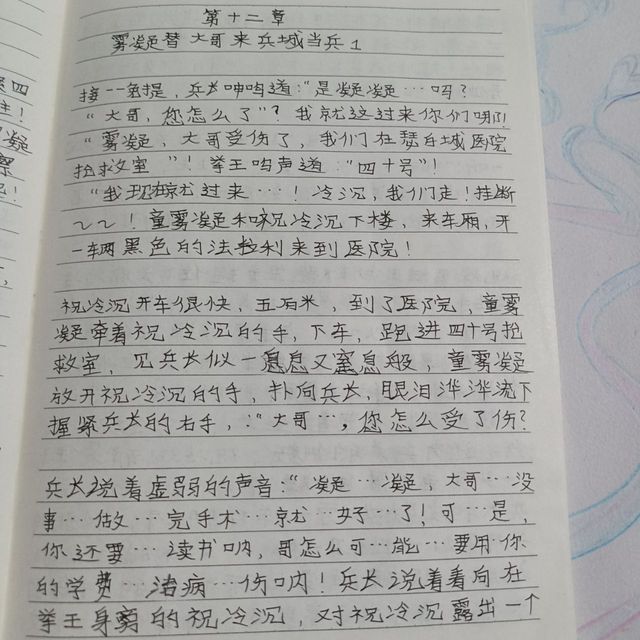 第十二章
雾凝替大哥来兵城当兵1
接一一急提，兵长呻呜道："是凝凝…吗？
"大哥，您怎么了"？我就这过来你们哪！
"雾凝，大哥受伤了，我们在瑟白城医院
抢救室"！拳王呜声道："四十号"！
"我现在就过来…！冷沉，我们走！挂断
乙乙！童雾凝和祝冷沉下楼，来车厢，开
一辆黑色的法拉利来到医院！
祝冷沉开车很快，五百米，到了医院，童雾
凝牵着祝冷沉的手，下车，跑进四十号抢
救室，见兵长似一息息又窒息般，童雾凝
放开祝冷沉的手，扑向兵长，眼泪哗哗流下
握紧兵长的右手，："大哥…，您怎么受了伤？
兵长说着虚弱的声音："凝…凝，大哥…没
事…做…完手术…就…好…了！可…是，
你还要…读书呐，哥怎么可…能…要用你
的学费…治病…伤呐！兵长说着看向在
拳王身旁的祝冷沉，对祝冷沉露出一个
四
住！
凝
察
！